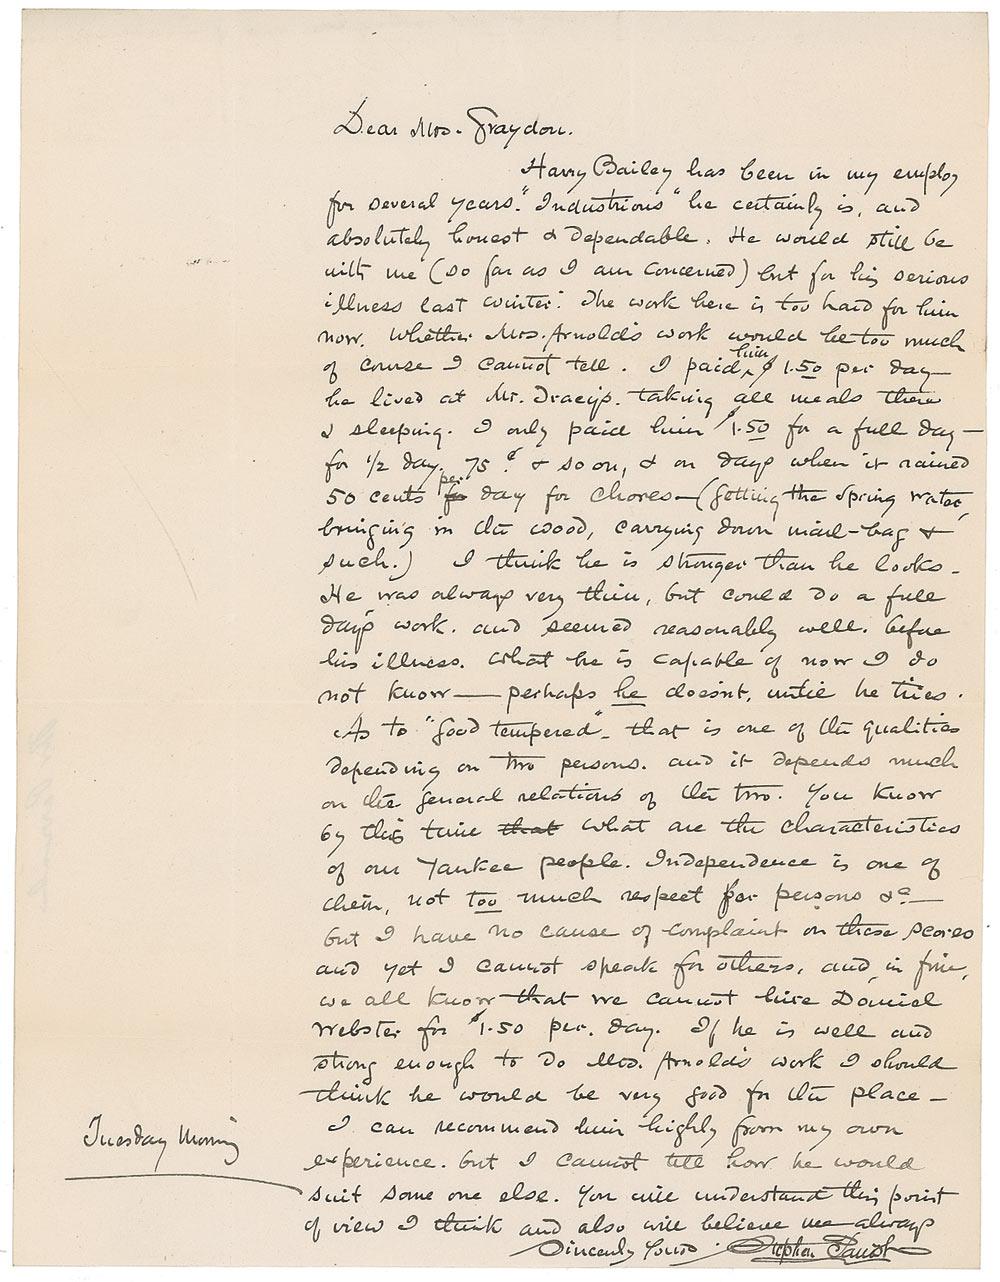 Dear Mrs. Graydon.
Harry Bailey has been in my employ
for several years. "Industrious" he certainly is, and
absolutely honest & dependable. He would still be
with me (so far as I am concerned) but for his serious
illness last winter. The work here is too hard for him
now. Whether Mrs. Arnold's work would be too much
of course I cannot tell. I paid him $1.50 per day—
he lived at Mr. Tracy's. taking all meals there
& sleeping. I only paid him $1.50 for a full day—
for 1/2 day. 75 ¢ & so on, & on days when it rained
50 cents per day for chores—(getting the spring water,
bringing in the wood, carrying down mail-bag &
such.) I think he is stronger than he looks—
He was always very thin, but could do a full
day's work. and seemed reasonably well. before
his illness. What he is capable of now I do
not know—perhaps he doesn't, until he tries.
As to "good tempered"—that is one of the qualities
depending on two persons. and it depends much
on the general relations of the two. You know
by this time that what are the characteristics
of our Yankee people. Independence is one of
them, not too much respect for persons &c—
but I have no cause of complaint on those scores
and yet I cannot speak for others, and, in fine,
we all know that we cannot hire Daniel
Webster for $1.50 per. day. If he is well and
strong enough to do Mrs. Arnold's work I should
think he would be very good for the place—
I can recommend him highly from my own
Tuesday Morning
experience. but I cannot tell how he would
suit some one else. You will understand this point
of view I think and also will believe me always
Sincerely Yours. Stephen Parrish